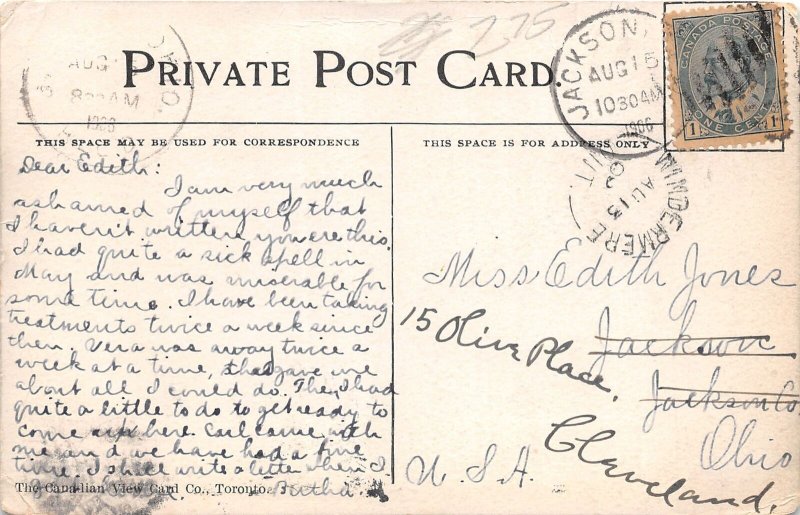 275
PRIVATE POST CARD.
JACKSON,
AUG 15
1030AM
1906
CANADA POSTAGE
1 ONE CENT 1
AUG
OHIO.
8 AM
1906
THIS SPACE MAY BE USED FOR CORRESPONDENCE
THIS SPACE IS FOR ADDRESS ONLY
WINDERMERE
AU 13
ONT
Dear Edith:
I am very much
ashamed of myself that
I haven't written you ere this.
I had quite a sick spell in
May and was miserable for
some time. I have been taking
treatments twice a week since
then. Vera was away twice a
week at a time, that gave me
about all I could do. Then I had
quite a little to do to get ready to
come up here. Earl came with
me and we have had a fine
time. I shall write a letter when I
Bertha.
Miss Edith Jones
15 Olive Place,
Jackson
Jackson Co
Cleveland,
Ohio
U.S.A.
The Canadian View Card Co., Toronto.